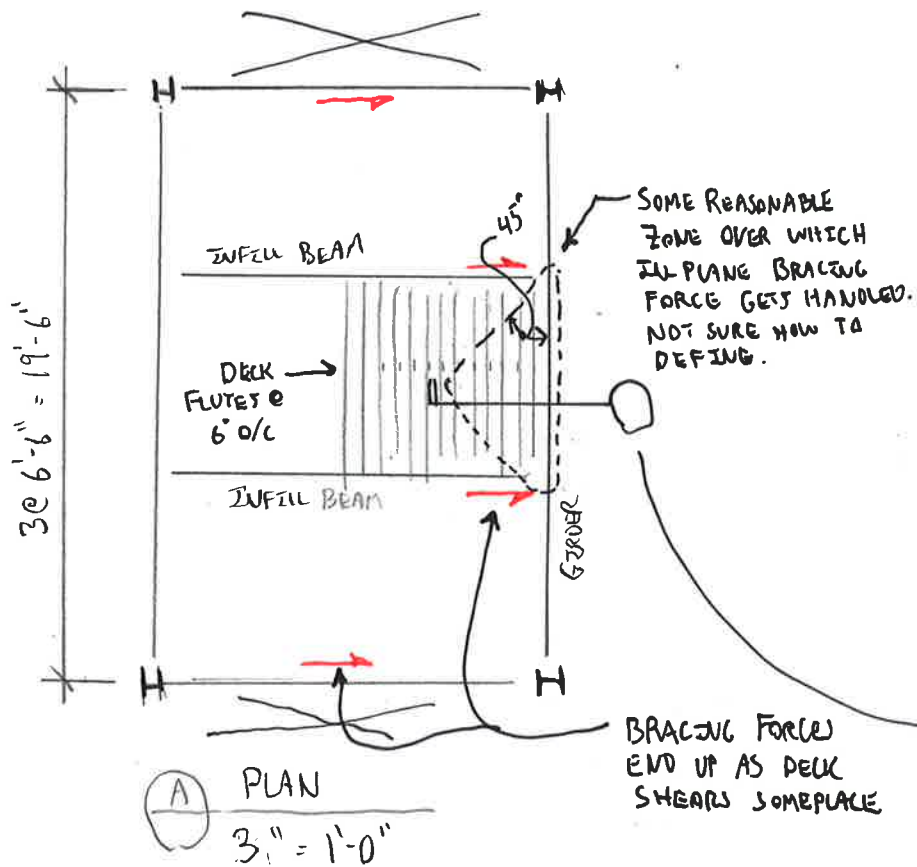 45°
SOME REASONABLE
ZONE OVER WHICH
IN PLANE BRACING
FORCE GETS HANDLED.
NOT SURE HOW TO
DEFINE.
INFILL BEAM
DECK
FLUTES @
6" O/C
INFILL BEAM
GIRDER
3@ 6'-6" = 19'-6"
BRACING FORCES
END UP AS DECK
SHEARS SOMEPLACE
A
PLAN
3" = 1'-0"